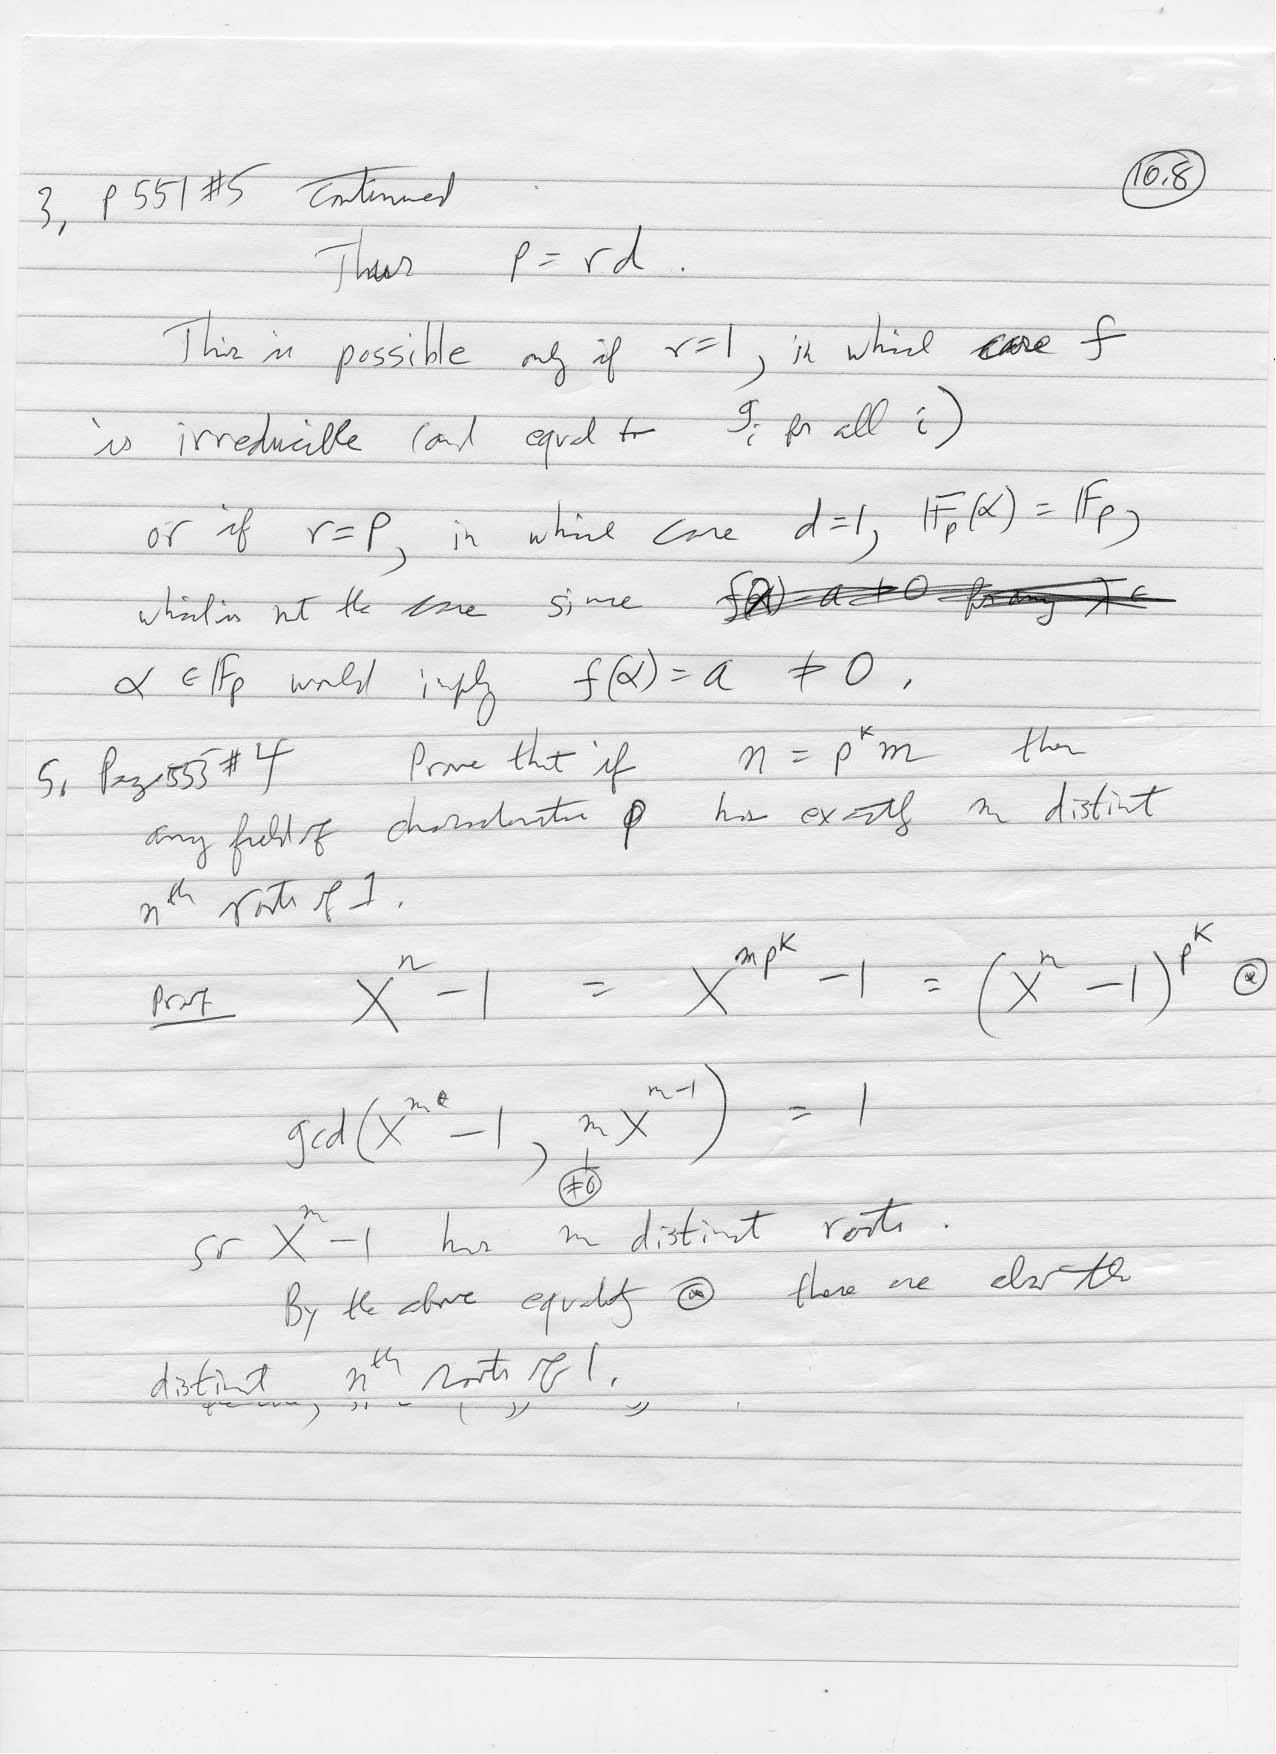 10.8
3, p 551 #5 Continued
Thus p = rd.
This is possible only if r=1, in which case f
is irreducible (and equal to g_i for all i)
or if r=p, in which case d=1, 𝔽_p(α) = 𝔽_p,
which is not the case since
α ∈ 𝔽_p would imply f(α) = a ≠ 0,
5, Page 555 #4 Prove that if n = p^k m then
any field of characteristic p has exactly m distinct
n^th roots of 1.
Proof x^n - 1 = x^{mp^k} - 1 = (x^n - 1)^{p^k} ⊛
gcd(x^m - 1, m x^{m-1}) = 1
≠0
so x^m - 1 has m distinct roots.
By the above equality ⊛ there are also the
distinct n^th roots of 1.